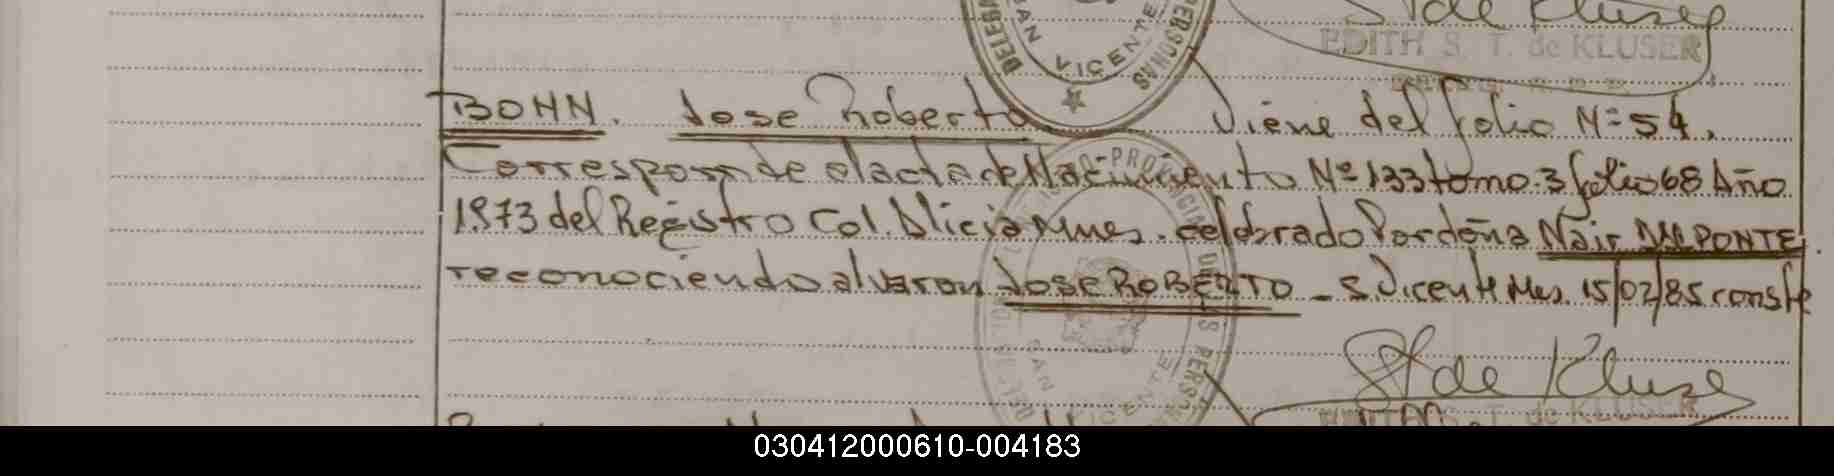 St de Kluser
EDITH S. T. de KLUSER
DELEGA
SAN VICENTE
PERSONAS
BOHN. Jose Roberto Viene del folio Nº 54.
Corresponde al acta de Nacimiento Nº 133 tomo.3 folio 68 Año
1.973 del Registro Col. Alicia Mnes. celebrado Por doña Nair DAL PONTE.
reconociendo al varon JOSE ROBERTO _ S. Vicente Mes. 15/02/85 conste
SAN VICENTE
St de Kluse
EDITH S. T. de KLUSER
030412000610-004183